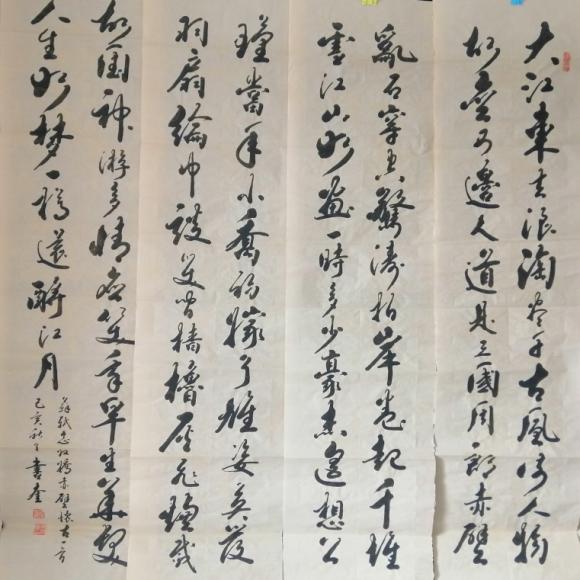 大江東去浪淘尽千古風流人物
故壘西邊人道是三國周郎赤壁
亂石穿空驚濤拍岸卷起千堆
雪江山如畫一時多少豪杰遙想公
瑾當年小喬初嫁了雄姿英發
羽扇綸巾談笑間檣櫓灰飛煙滅
故國神游多情應笑我早生華髮
人生如夢一樽還酹江月
蘇軾念奴嬌赤壁懷古一首
己亥秋書奎